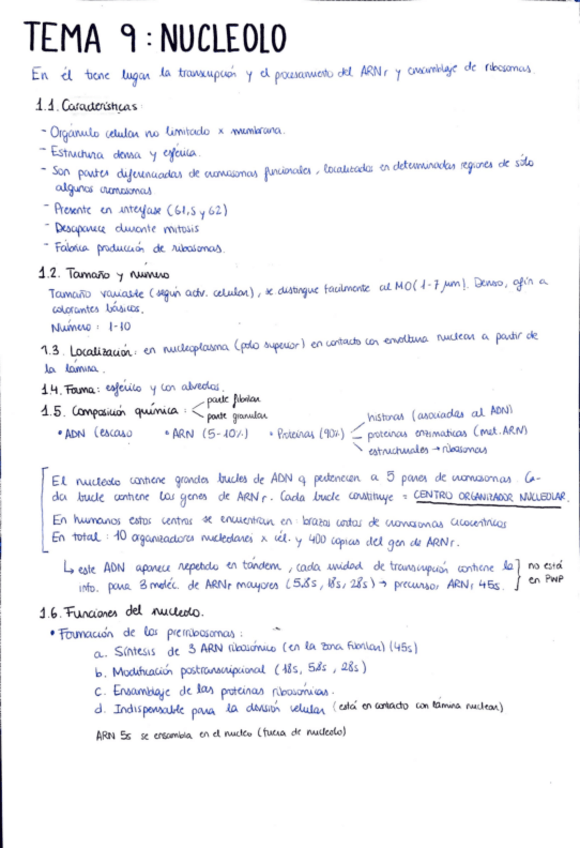 TEMA 9: NUCLEOLO
En él tiene lugar la transcripción y el procesamiento del ARNr y ensamblaje de ribosomas.
1.1. Características:
- Orgánulo celular no limitado x membrana.
- Estructura densa y esférica.
- Son partes diferenciadas de cromosomas funcionales, localizadas en determinadas regiones de sólo
algunos cromosomas
- Presente en interfase (G1, S y G2)
- Desaparece durante mitosis
- Fábrica producción de ribosomas.
1.2. Tamaño y número
Tamaño variable (según actv. celular), se distingue facilmente al MO (1-7 µm). Denso, afín a
colorantes básicos.
Número: 1-10
1.3. Localización: en nucleoplasma (polo superior) en contacto con envoltura nuclear a partir de
la lámina.
1.4. Forma: esférico y con alveolos.
1.5. Composición química: parte fibrilar
parte granular
• ADN (escaso • ARN (5-10%) • Proteínas (90%)
histonas (asociadas al ADN)
proteínas enzimáticas (met. ARN)
estructurales → ribosomas
El nucleolo contiene grandes bucles de ADN q pertenecen a 5 pares de cromosomas. Ca-
da bucle contiene los genes de ARNr. Cada bucle constituye = CENTRO ORGANIZADOR NUCLEOLAR.
En humanos estos centros se encuentran en: brazos cortos de cromosomas acrocéntricos
En total: 10 organizadores nucleolares x cél. y 400 copias del gen de ARNr.
↳ este ADN aparece repetido en tándem, cada unidad de transcripción contiene la
info. para 3 moléc. de ARNr mayores (5,8s, 18s, 28s) → precursor ARNr 45s.
no está
en PWP
1.6. Funciones del nucleolo.
• Formación de los prerribosomas:
a. Síntesis de 3 ARN ribosómico (en la zona fibrilar) (45s)
b. Modificación postranscripcional (18s, 5,8s, 28s)
c. Ensamblaje de las proteínas ribosómicas.
d. Indispensable para la división celular (está en contacto con lámina nuclear)
ARN 5s se ensambla en el nucleo (fuera de nucleolo)